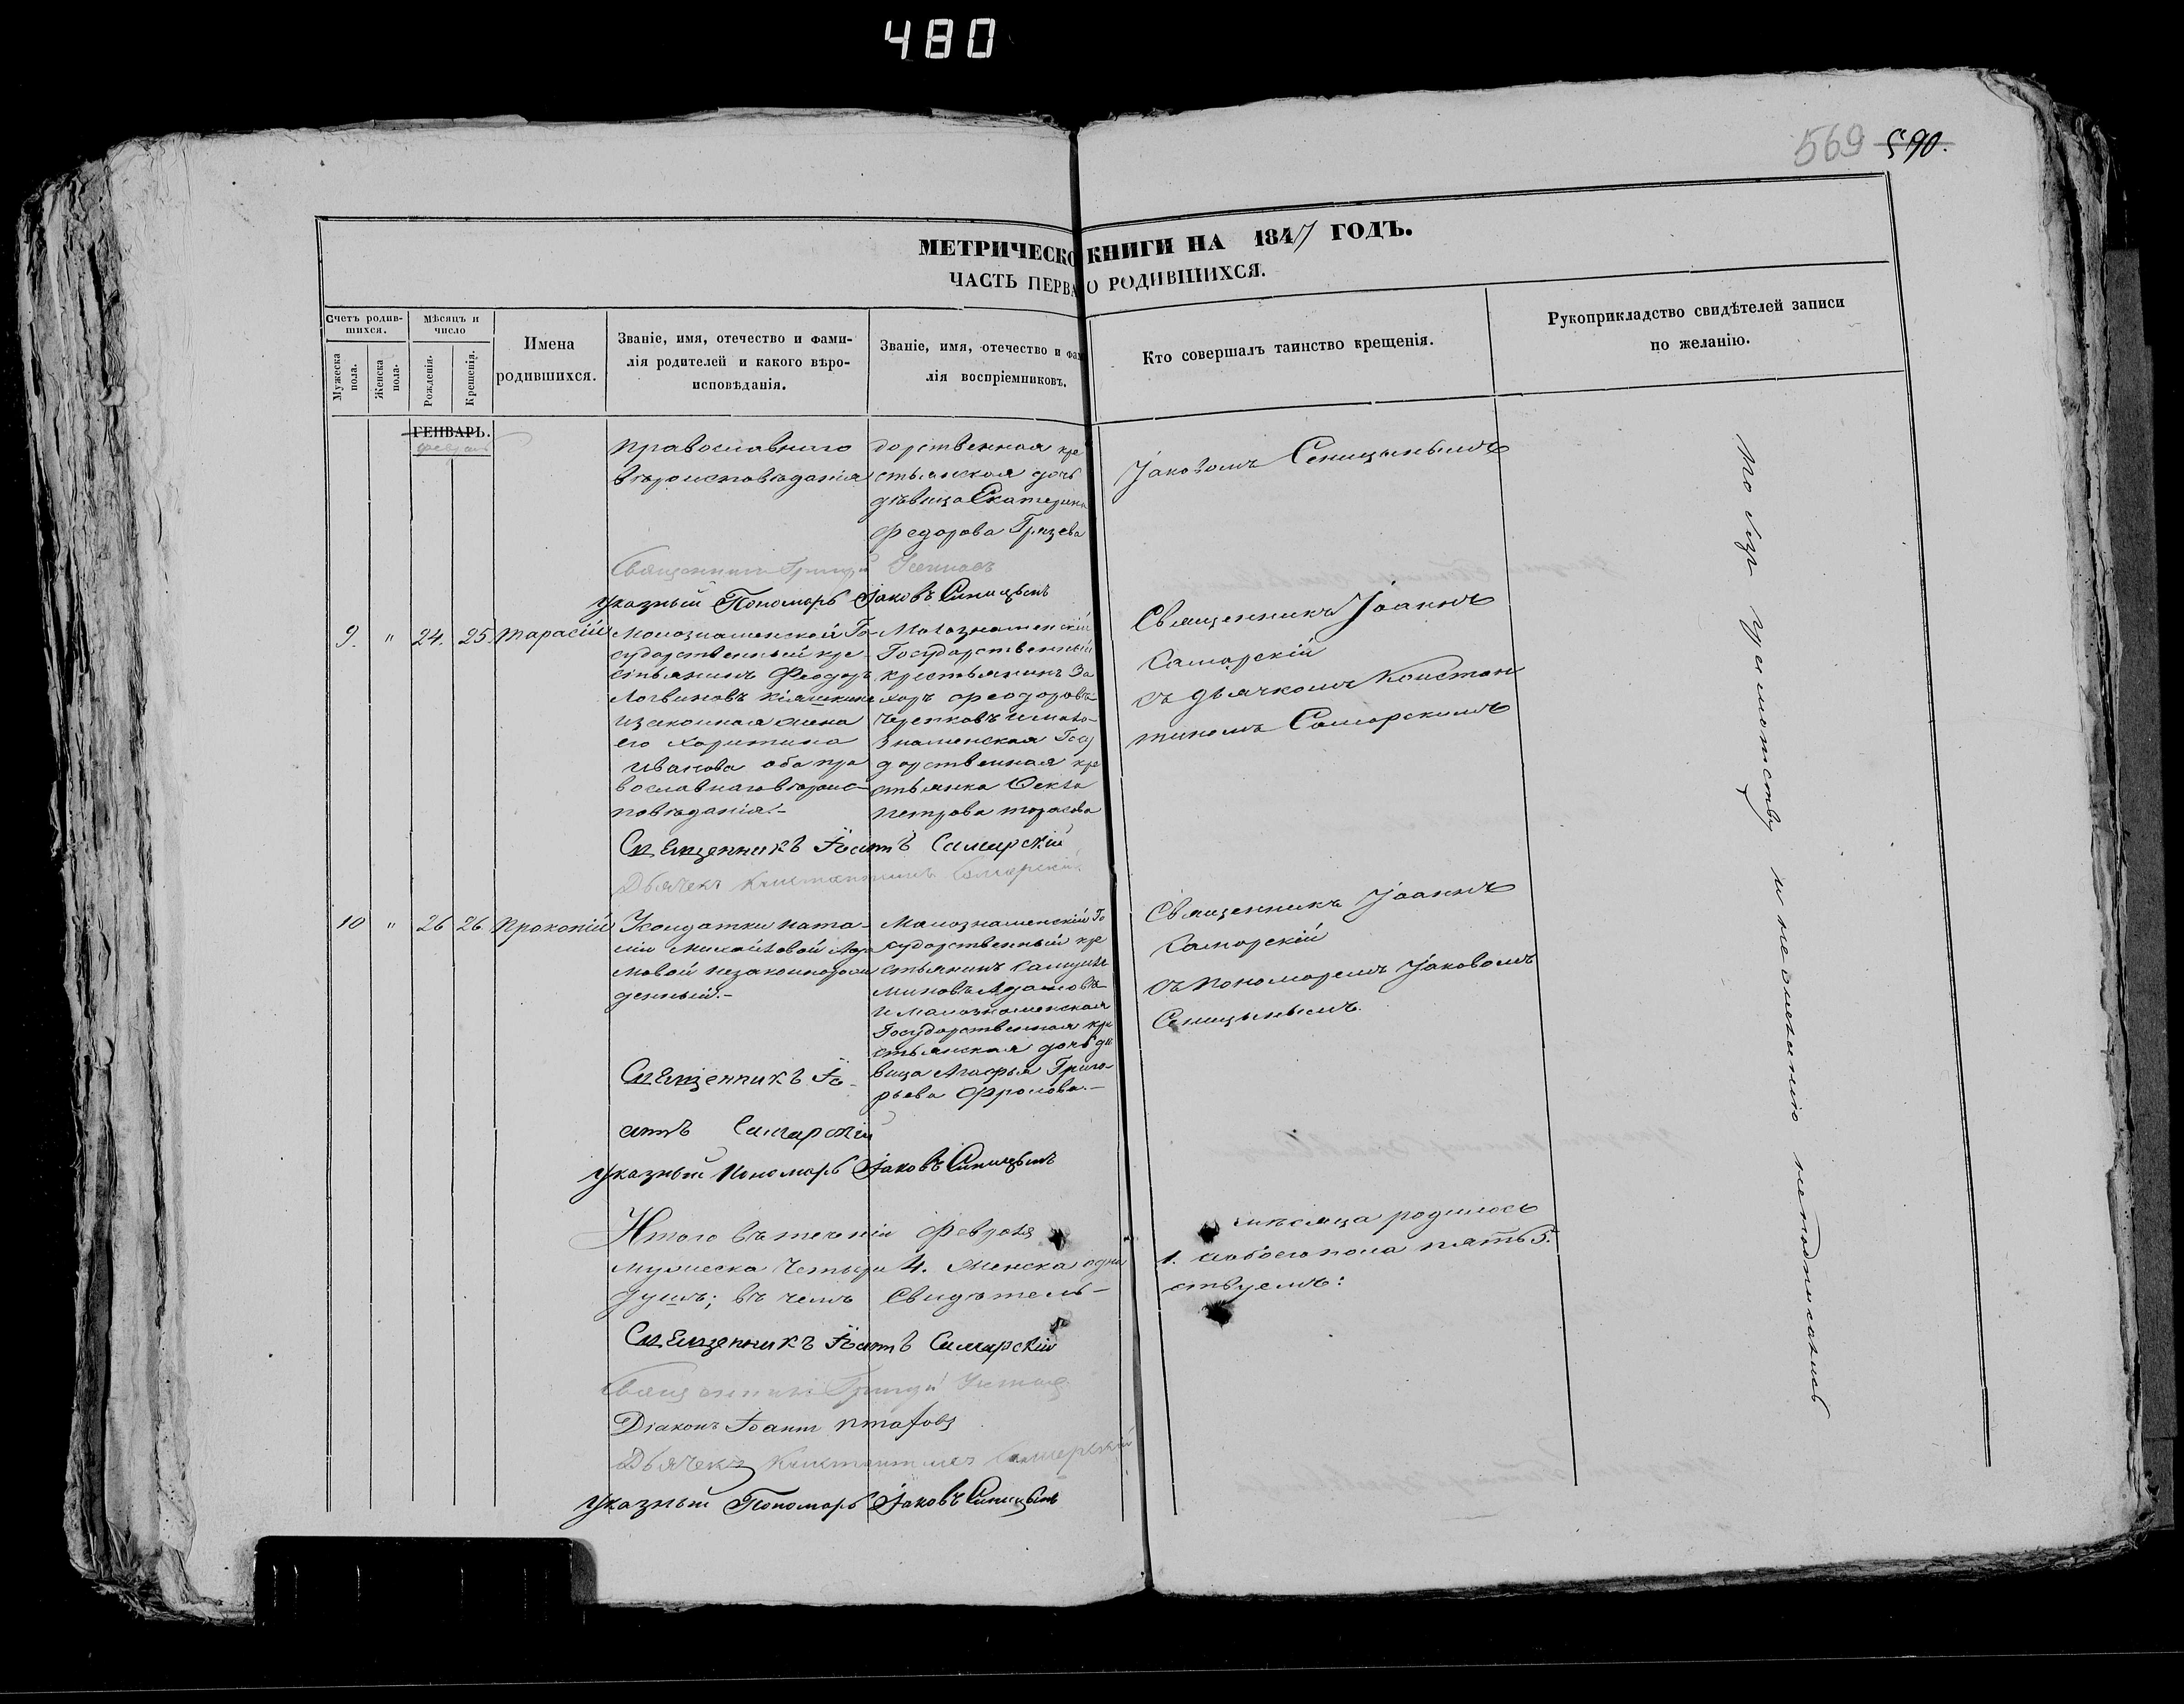 480
569 590.
МЕТРИЧЕСКО КНИГИ НА 1847 ГОДЪ.
ЧАСТЬ ПЕРВА О РОДИВШИХСЯ.
Счетъ родив-
шихся.
Мужеска
пола.
Женска
пола.
Мѣсяцъ и
число
Рожденія.
Крещенія.
Имена
родившихся.
Званіе, имя, отечество и фами-
лія родителей и какого вѣро-
исповѣданія.
Званіе, имя, отечество и фам
лія воспріемниковъ.
Кто совершалъ таинство крещенія.
Рукоприкладство свидѣтелей записи
по желанію.
ГЕНВАРЬ.
февраль
православнаго
вѣроисповѣданія
дарственная кре
стьянская дочь
дѣвица Екатерина
Федорова Грязева
Іаковомъ Сеницынымъ
Священникъ
Указный Пономарь Іаковъ Синицынъ
9. " 24. 25. Тарасій
Малознаменской Го-
сударственный кре-
стьянинъ Феодоръ
Логвиновъ
и законная жена
его Харитина
Иванова оба пра
вославнаго вѣроис-
повѣданія.-
Малознаменскій
Государственный
крестьянинъ За
харъ Феодоровъ
Черепковъ и мало-
знаменская Госу
дарственная кре
стьянка Фекла
Петрова Тарасова
Священникъ Іоаннъ
Самарскій
съ дьячкомъ Констан
тиномъ Самарскимъ
Священникъ Іоаннъ Самарскій
Дьячекъ Константинъ Самарскій.
10 " 26 26 Прокопій
У солдатки Ната-
ліи Михайловой Ада
мовой незаконнорож
денный.-
Малознаменскій Го
сударственный кре
стьянинъ
Адамовъ
и малознаменская
Государственная кре
стьянская дочь дѣ
вица Агафья Григо-
рьева Фролова.-
Священникъ Іоаннъ
Самарскій
съ пономаремъ Іаковомъ
Сеницынымъ.
Священникъ Іо-
аннъ Самарскій
Указный Пономарь Іаковъ Синицынъ
Итого въ теченіи Февраля мѣсяца родилось
мужеска четыре 4. женска одна 1. и обоего пола пять 5.
душъ; въ чемъ Свидѣтель- ствуемъ:
Священникъ Іоаннъ Самарскій
Священникъ
Діаконъ Іоаннъ
Дьячекъ Константинъ Самарскій
Указный Пономарь Іаковъ Синицынъ
не подписались